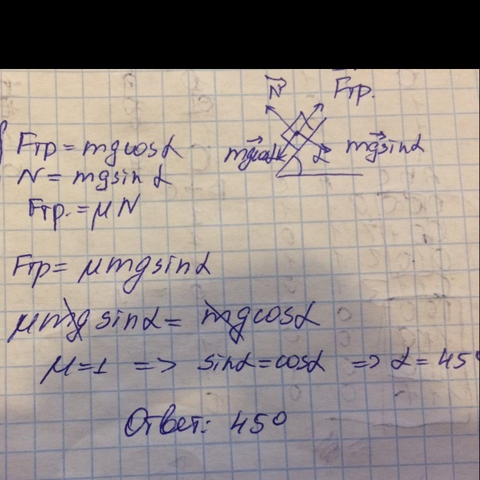 N⃗ Fтр.
mg⃗cosα α mg⃗sinα
Fтр = mgcosα
N = mgsinα
Fтр. = μN
Fтр = μmgsinα
μmgsinα = mgcosα
μ=1 => sinα=cosα => α=45°
Ответ: 45°